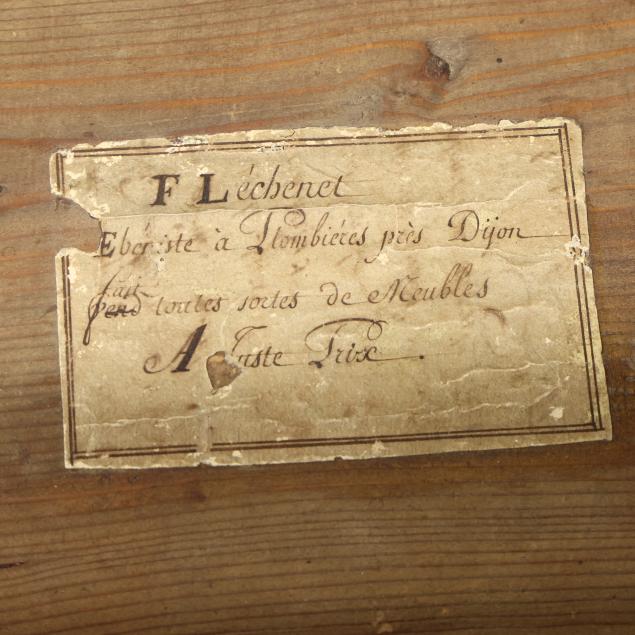 F Léchenet
Ebéniste à Plombiéres près Dijon
fait
toutes sortes de Meubles
A Juste Prix.